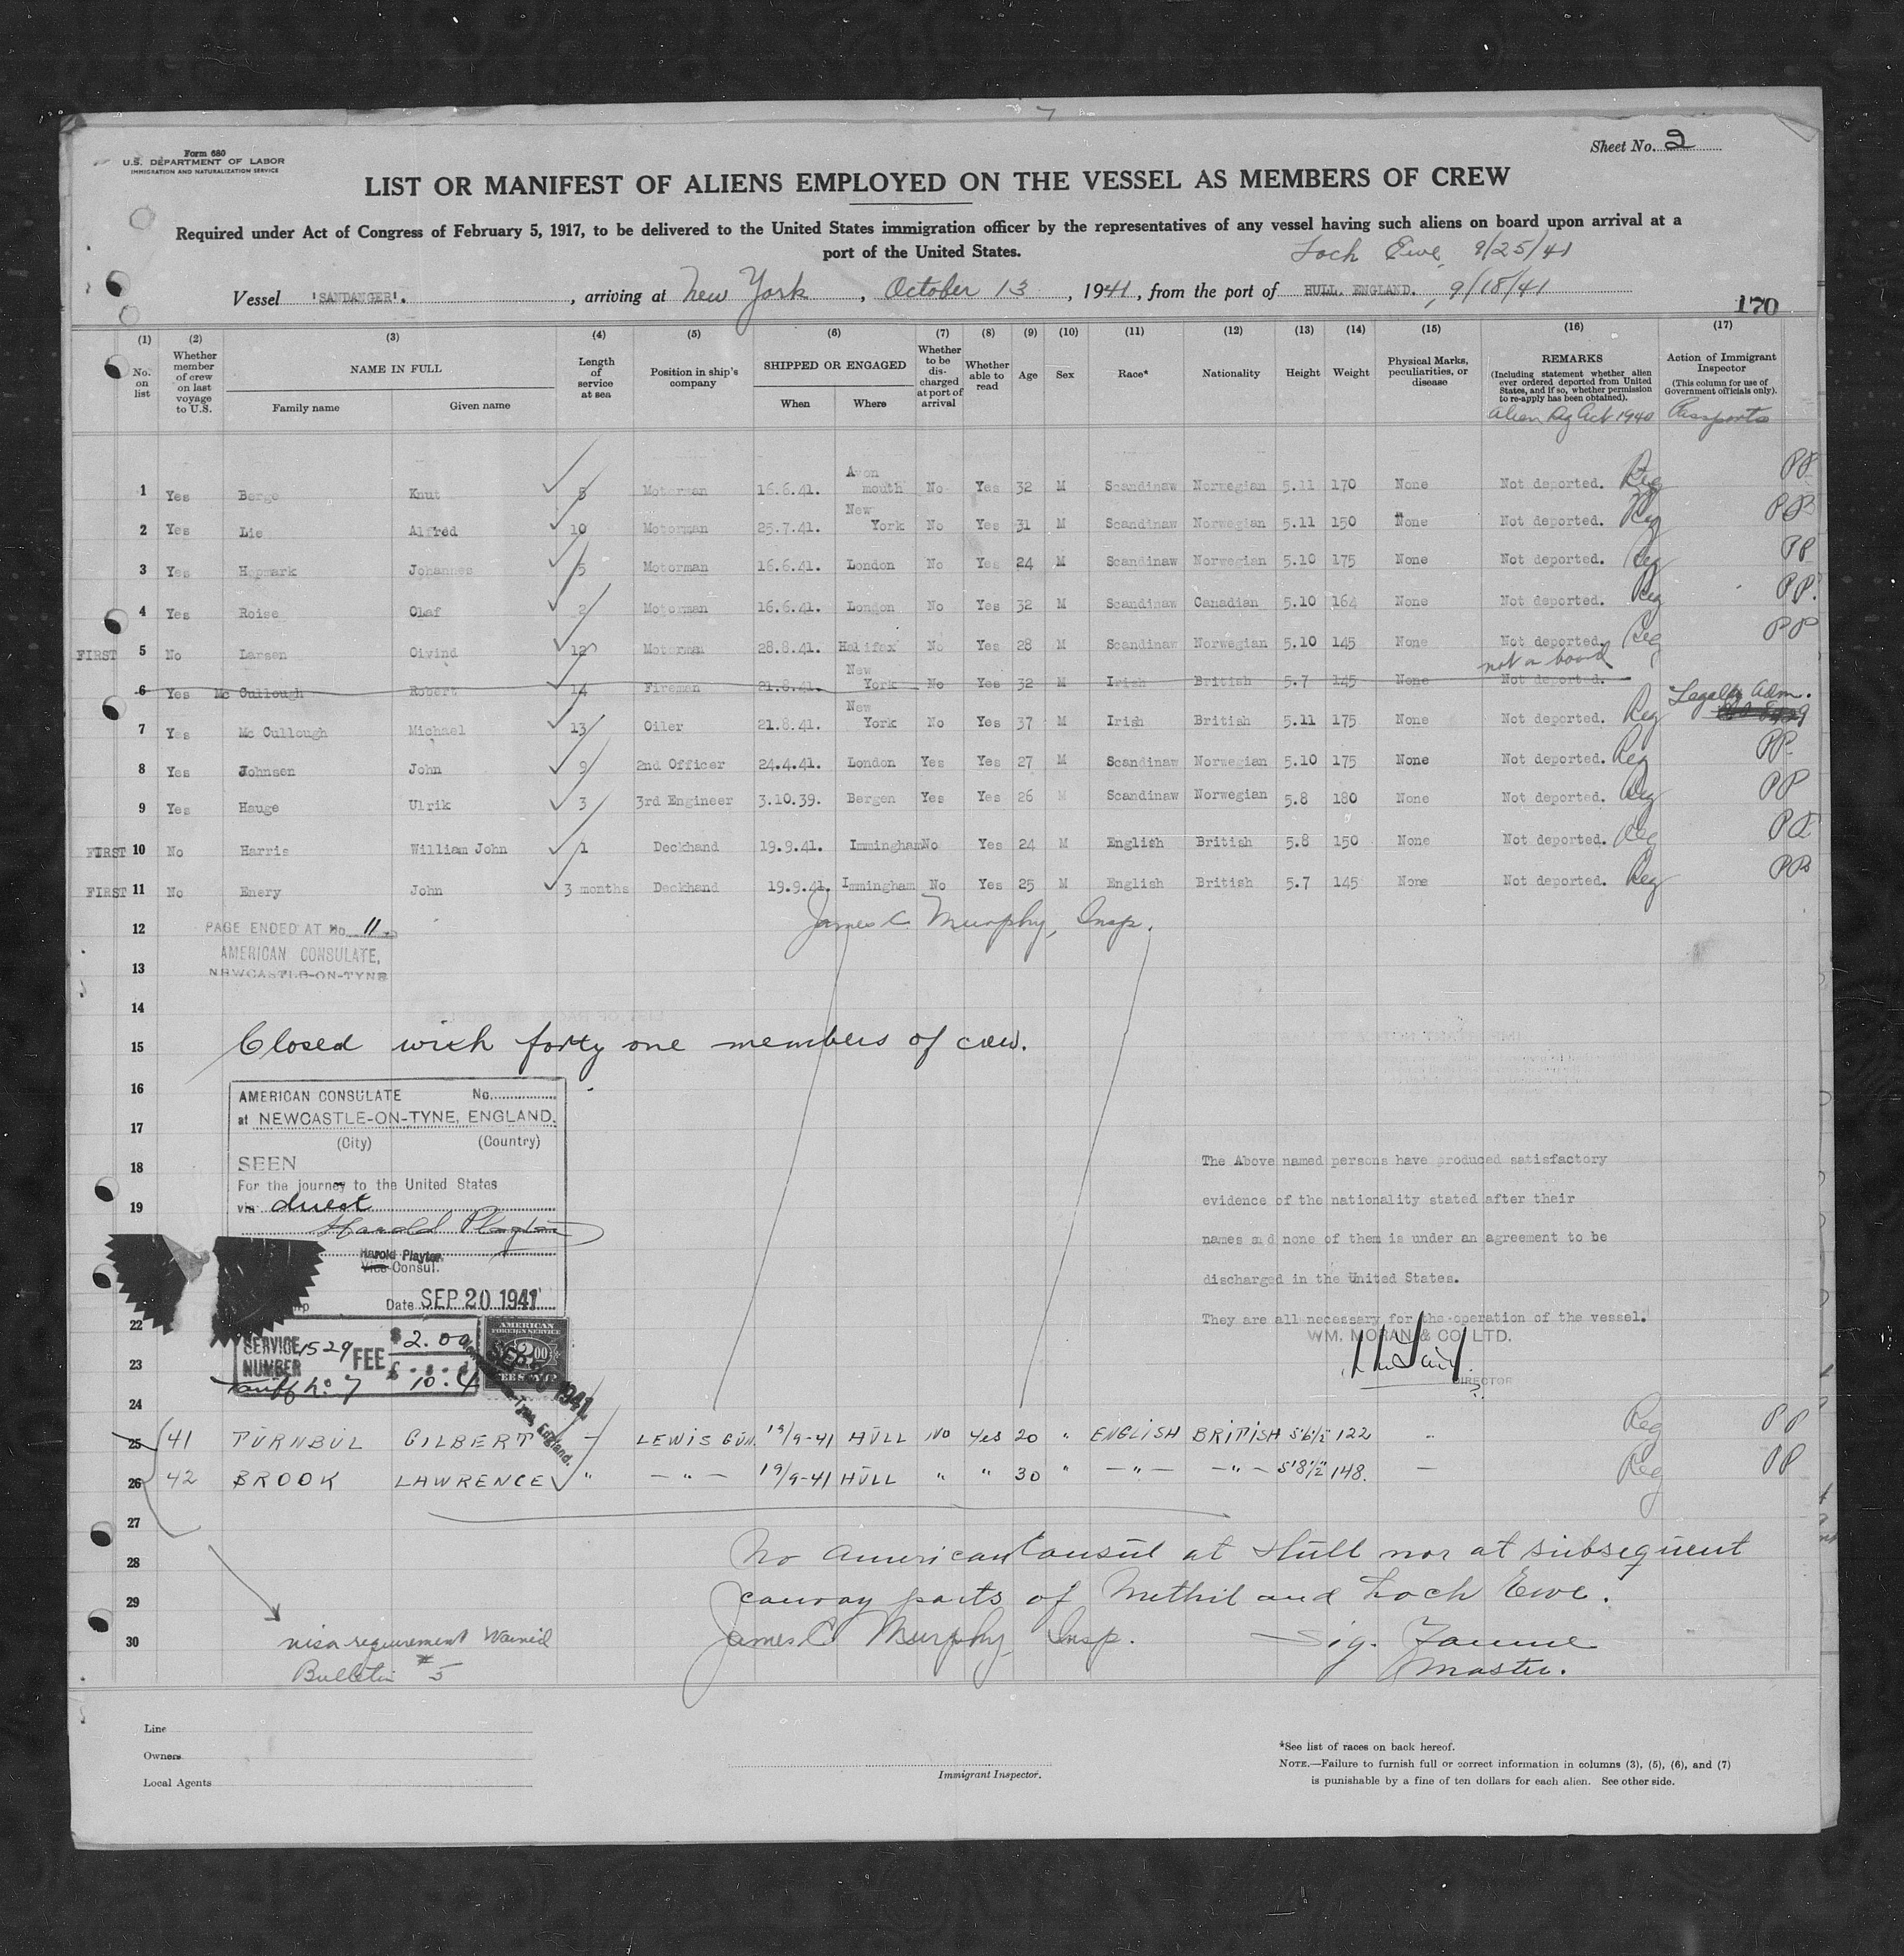 Form 680
U.S. DEPARTMENT OF LABOR
IMMIGRATION AND NATURALIZATION SERVICE
Sheet No. 2
LIST OR MANIFEST OF ALIENS EMPLOYED ON THE VESSEL AS MEMBERS OF CREW
Required under Act of Congress of February 5, 1917, to be delivered to the United States immigration officer by the representatives of any vessel having such aliens on board upon arrival at a
port of the United States.
Loch Ewe, 9/25/41
Vessel 'SANDANGER'. , arriving at New York , October 13 , 1941, from the port of HULL. ENGLAND. , 9/18/41
170
(1) (2) (3) (4) (5) (6) (7) (8) (9) (10) (11) (12) (13) (14) (15) (16) (17)
No. on list Whether member of crew on last voyage to U.S. NAME IN FULL Family name Given name Length of service at sea Position in ship's company SHIPPED OR ENGAGED When Where Whether to be discharged at port of arrival Whether able to read Age Sex Race* Nationality Height Weight Physical Marks, peculiarities, or disease REMARKS (Including statement whether alien ever ordered deported from United States, and if so, whether permission to re-apply has been obtained). Action of Immigrant Inspector (This column for use of Government officials only).
Alien Reg Act 1940 Passports
1 Yes Berge Knut 5 Motorman 16.6.41. Avon mouth No Yes 32 M Scandinaw Norwegian 5.11 170 None Not deported. Reg PP
2 Yes Lie Alfred 10 Motorman 25.7.41. New York No Yes 31 M Scandinaw Norwegian 5.11 150 None Not deported. Reg PP
3 Yes Hopmark Johannes 5 Motorman 16.6.41. London No Yes 24 M Scandinaw Norwegian 5.10 175 None Not deported. Reg PP
4 Yes Roise Olaf 2 Motorman 16.6.41. London No Yes 32 M Scandinaw Canadian 5.10 164 None Not deported. Reg PP.
FIRST 5 No Larsen Oivind 12 Motorman 28.8.41. Halifax No Yes 28 M Scandinaw Norwegian 5.10 145 None Not deported. Reg PP
not on board
6 Yes Mc Cullough Robert 14 Fireman 21.8.41. New York No Yes 32 M Irish British 5.7 145 None Not deported.
7 Yes Mc Cullough Michael 13 Oiler 21.8.41. New York No Yes 37 M Irish British 5.11 175 None Not deported. Reg Legally Adm.
8 Yes Johnsen John 9 2nd Officer 24.4.41. London Yes Yes 27 M Scandinaw Norwegian 5.10 175 None Not deported. Reg PP
9 Yes Hauge Ulrik 3 3rd Engineer 3.10.39. Bergen Yes Yes 26 M Scandinaw Norwegian 5.8 180 None Not deported. Reg PP
FIRST 10 No Harris William John 1 Deckhand 19.9.41. Immingham No Yes 24 M English British 5.8 150 None Not deported. Reg PP
FIRST 11 No Enery John 3 months Deckhand 19.9.41. Immingham No Yes 25 M English British 5.7 145 None Not deported. Reg PP
12 PAGE ENDED AT No 11 James C Murphy, Insp.
AMERICAN CONSULATE,
13 NEWCASTLE-ON-TYNE
14
15 Closed with forty one members of crew.
16 AMERICAN CONSULATE No.
at NEWCASTLE-ON-TYNE, ENGLAND.
17 (City) (Country)
18 SEEN The Above named persons have produced satisfactory
For the journey to the United States
19 via direct evidence of the nationality stated after their
Harold Playter
names and none of them is under an agreement to be
Harold Playter
Vice Consul.
discharged in the United States.
Date SEP 20 1941
22 They are all necessary for the operation of the vessel.
WM. MORAN & CO. LTD.
DIRECTOR
AMERICAN FOREIGN SERVICE
23 SERVICE NUMBER 1529 FEE $ 2.00
Tariff No. 7 10.4
24
25 41 TURNBUL GILBERT - LEWIS GUN. 19/9-41 HULL No Yes 20 " ENGLISH BRITISH 5'6½" 122 - Reg PP
26 42 BROOK LAWRENCE " - " - 19/9-41 HULL " " 30 " - " - - " - 5'8½" 148. - Reg PP
27
28 No American Consul at Hull nor at subsequent
29 convoy ports of Methil and Loch Ewe.
30 visa requirement Waived James C. Murphy Insp. Sig.
Bulletin #5 Master.
Line
Owners
Local Agents
Immigrant Inspector.
*See list of races on back hereof.
NOTE.—Failure to furnish full or correct information in columns (3), (5), (6), and (7)
is punishable by a fine of ten dollars for each alien. See other side.